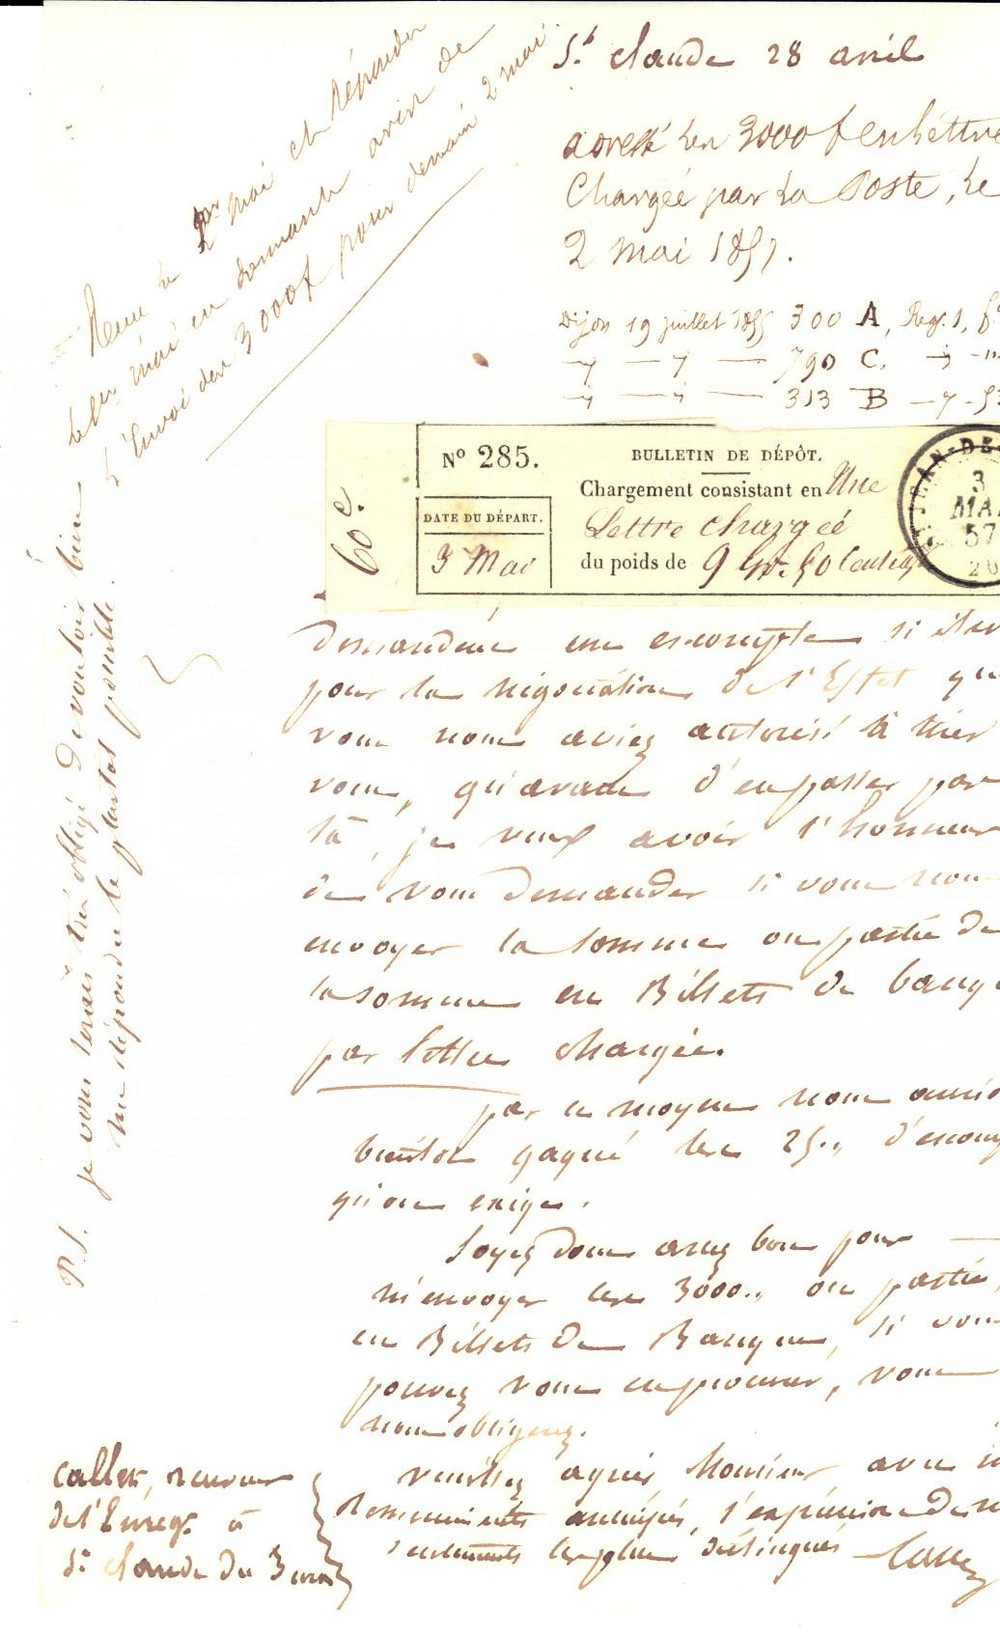 St. claude 28 avril
adressé les 3000 f en Lettre
Chargée par La Poste, Le
2 mai 1857.
Dijon 19 juillet 1855 300 A, Reg. 1, f°
790 C.
313 B
Reçu le 1er mai et répondu
Le 1er mai en demandant avis de
l'Envoi des 3000f pour demain 2 mai
N° 285.
BULLETIN DE DÉPÔT.
Chargement consistant en Une
Lettre chargée
du poids de 9 gr. 50 Centig
DATE DU DÉPART.
3 Mai
60 c.
JEAN-DE
3
MAI
57
demandent un escompte si
pour la négociation de l'Effet que
vous nous aviez autorisé à tirer
vous, qu'avant d'en passer par
là, je veux avoir l'honneur
de vous demander si vous nous
envoyer la somme ou partie de
la somme en Billets de banq
par lettre chargée.
par ce moyen nous
bientôt gagné les 25,, d'escomp
qu'on exige.
Soyez donc assez bon pour
m'envoyer les 3000,, ou partie,
en Billets de Banque, si vous
pouvez vous en procurer, vous
nous obligerez.
veuillez agréer, Monsieur avec
Remerciements anticipés, l'expression de
sentiments les plus distingués
Callet
callet, receveur
de l'Enreg. à
St. claude du Jura
P.S. je vous serais très obligé de vouloir bien
me répondre le plus tôt possible.